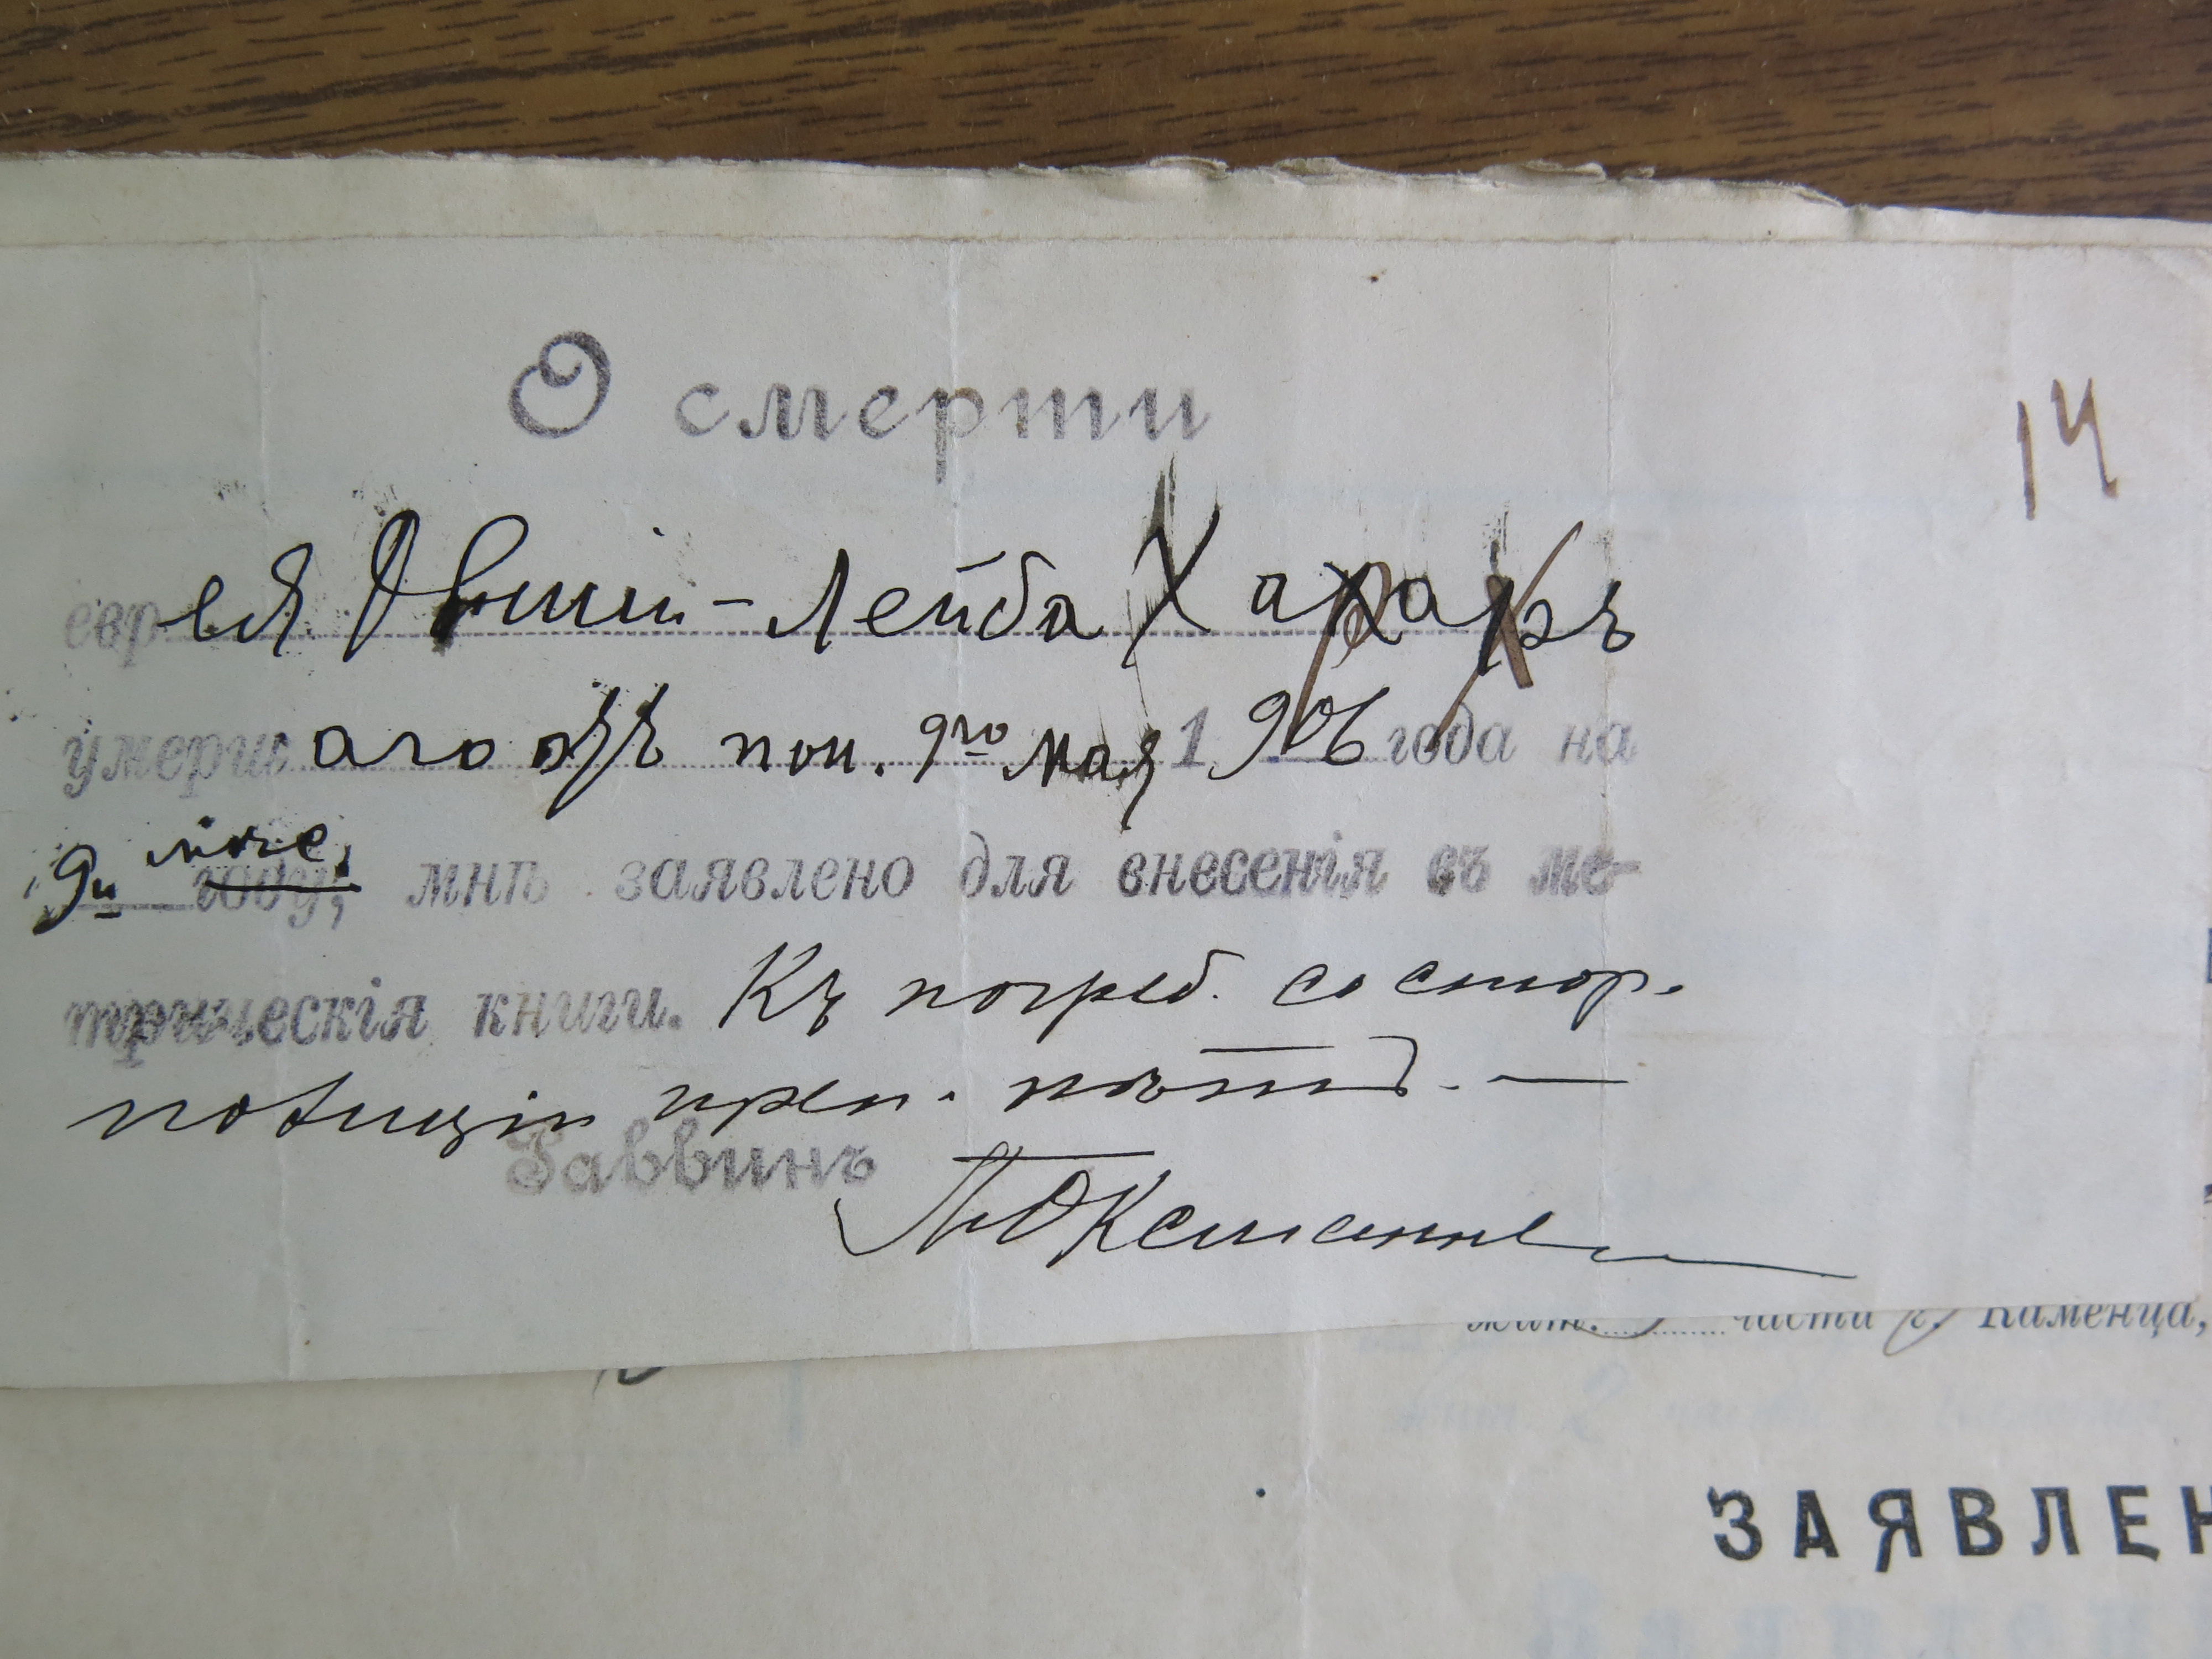 О смерти
14
евр ея Овшій-Лейба Харакъ
умерш аго отъ пон. 9го мая 1906 года на
9и мѣс. году, мнѣ заявлено для внесенія въ ме-
трическія книги. Къ погреб. со стор.
полиціи преп. нѣтъ. —
Раввинъ
жит. части г. Каменца,
ЗАЯВЛЕН